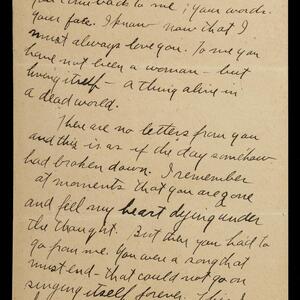 come back to me; your words.
Your face. I know now that I
must always love you. To me you
have not been a woman - but
living itself - a thing alive in
a dead world.
There are no letters from you
and this is as if the day somehow
had broken down. I remember
at moments that you are gone
and feel my heart dying under
the thought. But then you had to
go from me. You were a song that
must end - that could not go on
singing itself forever.